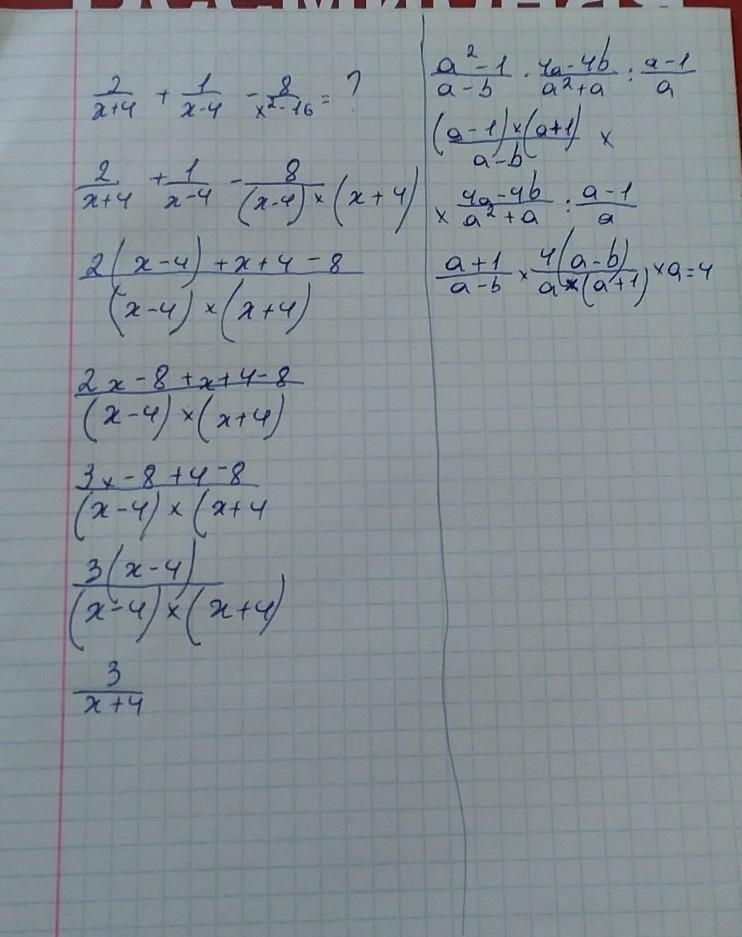 2/(x+4) + 1/(x-4) - 8/(x²-16) = ?
2/(x+4) + 1/(x-4) - 8/((x-4)×(x+4))
(2(x-4)+x+4-8)/((x-4)×(x+4))
(2x-8+x+4-8)/((x-4)×(x+4))
(3x-8+4-8)/((x-4)×(x+4
3(x-4)/((x-4)×(x+4))
3/(x+4)
(a²-1)/(a-b) · (4a-4b)/(a²+a) : (a-1)/a
((a-1)×(a+1))/(a-b) ×
× (4a-4b)/(a²+a) : (a-1)/a
(a+1)/(a-b) × 4(a-b)/(a×(a+1)) × a = 4